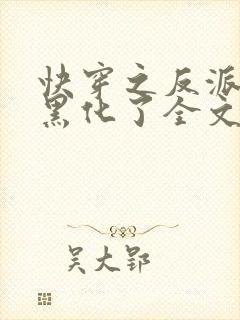 快穿之反派
黑化了全文
吴大郢